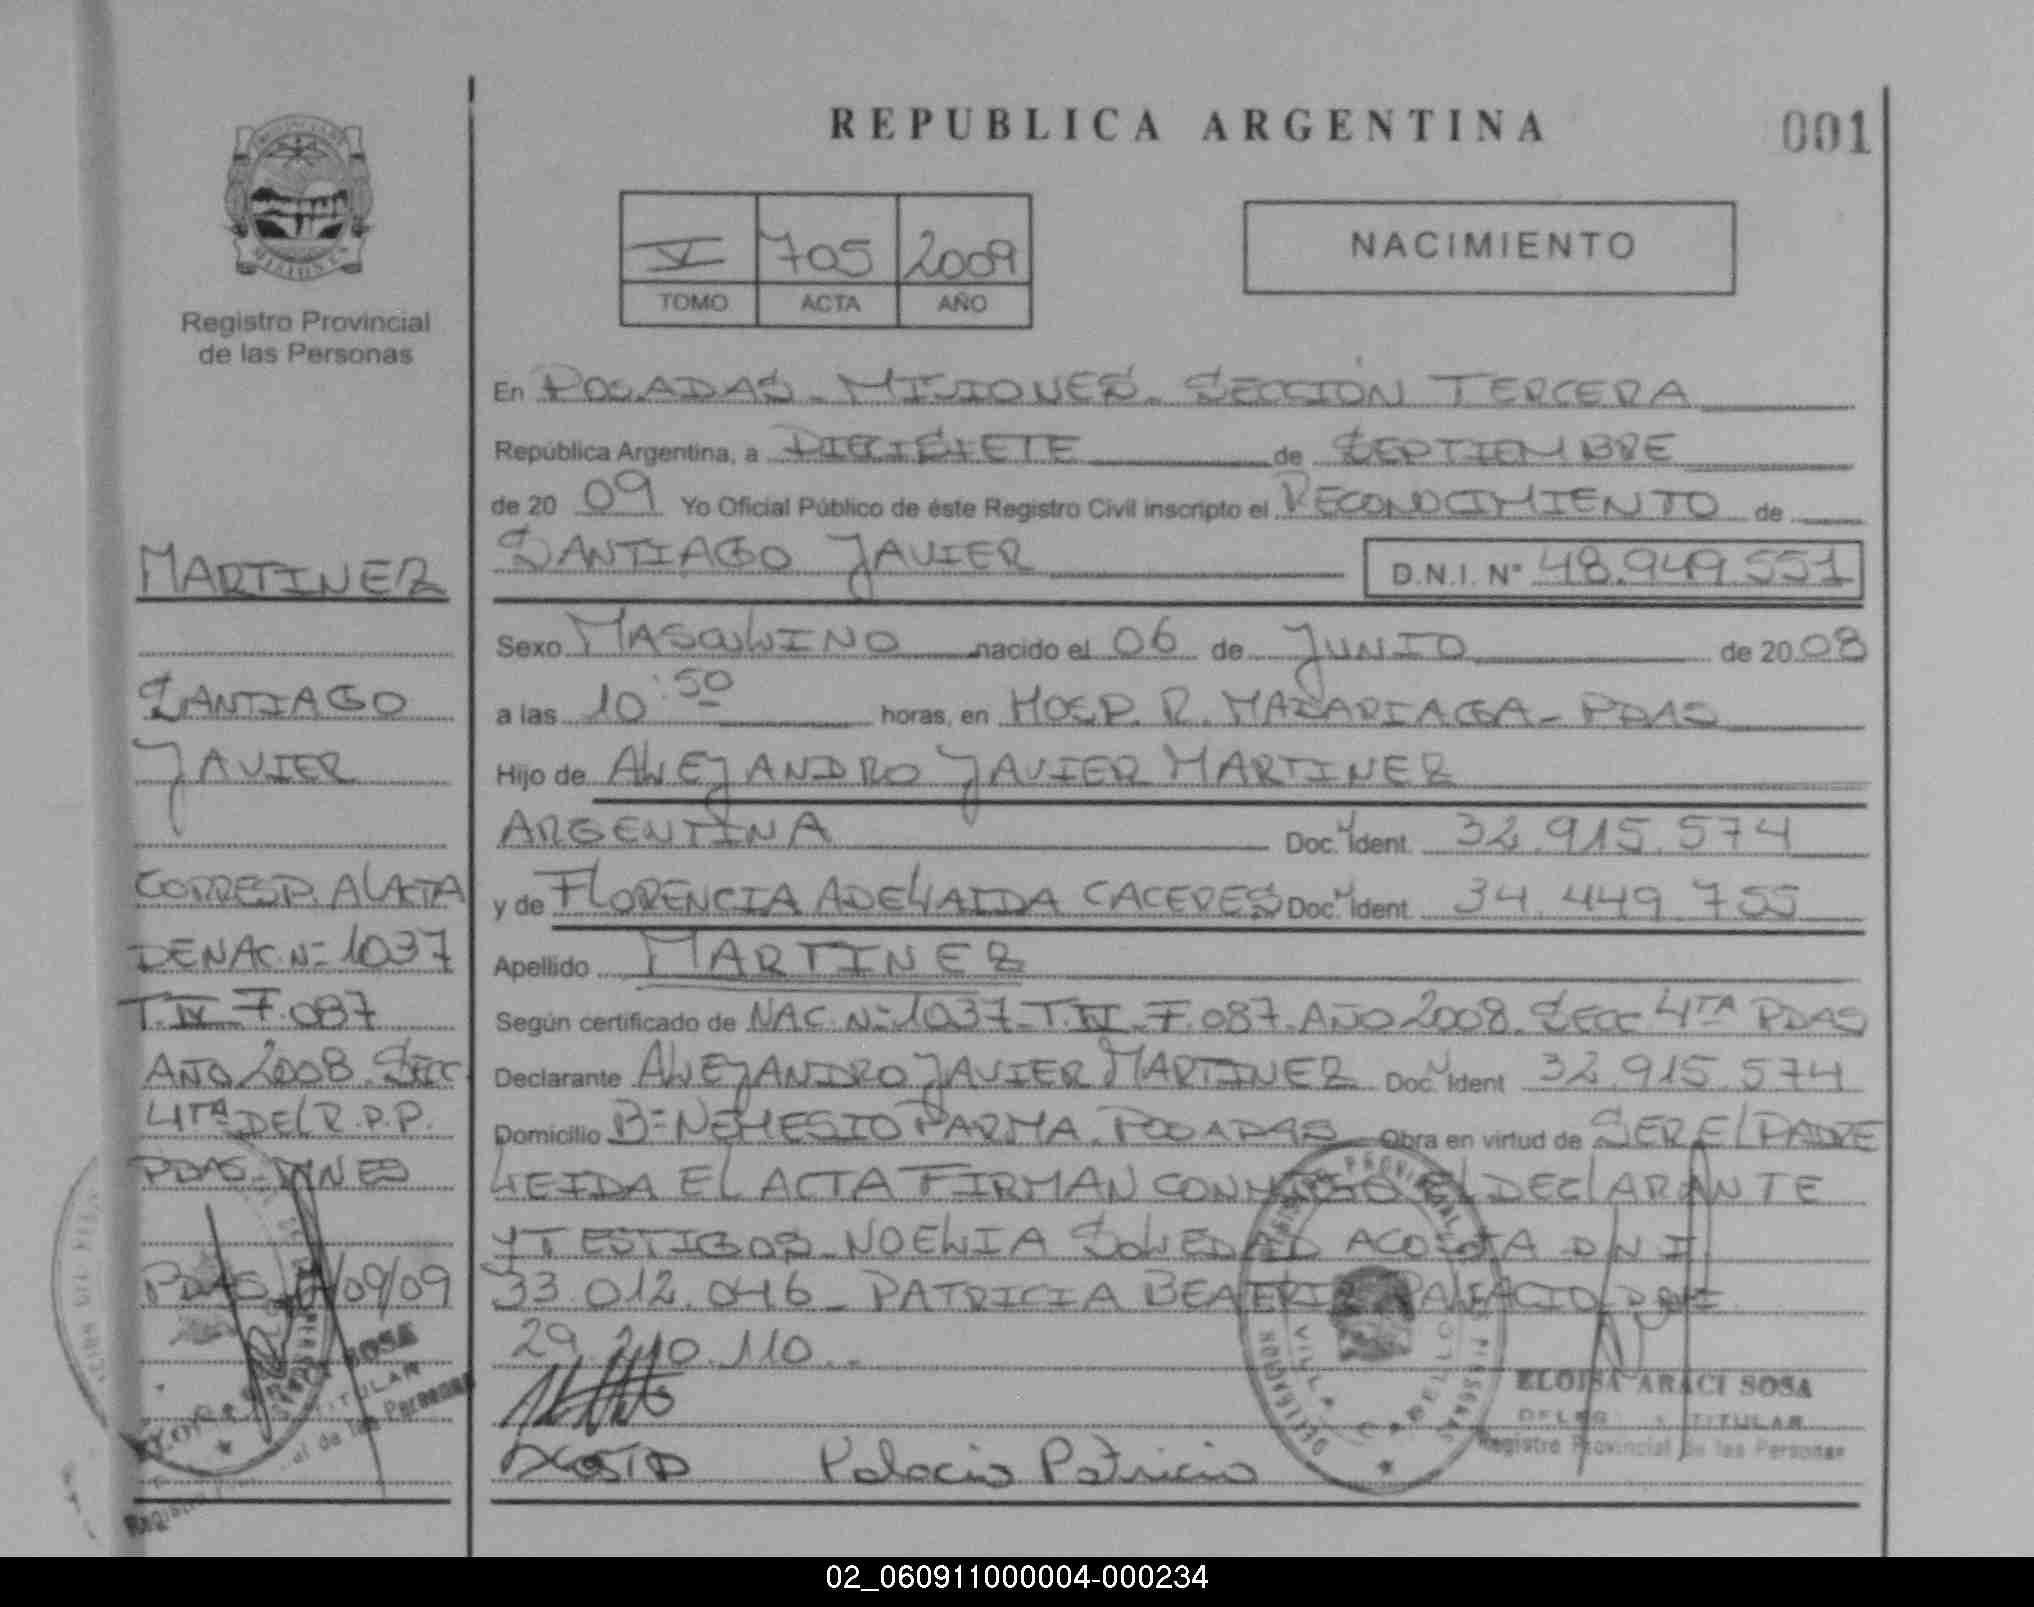 REPUBLICA ARGENTINA
001
V 705 2009
TOMO ACTA AÑO
NACIMIENTO
Registro Provincial
de las Personas
MARTINEZ
SANTIAGO
JAVIER
CORRESP. AL ACTA
DE NAC. Nº 1037
T. IV F. 087
AÑO 2008 SECC
4TA DEL R.P.P.
PDAS
PDAS /09/09
En POSADAS - MISIONES - SECCIÓN TERCERA
República Argentina, a DIECISIETE de SEPTIEMBRE
de 20 09 Yo Oficial Público de éste Registro Civil inscripto el RECONOCIMIENTO de
SANTIAGO JAVIER D.N.I. Nº 48.949.551
Sexo MASCULINO nacido el 06 de JUNIO de 20 08
a las 10:50 horas, en HOSP. R. MADARIAGA - PDAS
Hijo de ALEJANDRO JAVIER MARTINEZ
ARGENTINA Doc. Ident. 32.915.574
y de FLORENCIA ADELAIDA CACERES Doc. Ident. 34.449.755
Apellido MARTINEZ
Según certificado de NAC. Nº 1037 - T. IV - F. 087. AÑO 2008. SECC 4TA PDAS
Declarante ALEJANDRO JAVIER MARTINEZ Doc. Ident 32.915.574
Domicilio Bº NEMESIO PARMA - POSADAS Obra en virtud de SER EL PADRE
LEIDA EL ACTA FIRMAN CONMIGO EL DECLARANTE
Y TESTIGOS NOELIA SOLEDAD ACOSTA DNI
33.012.046 - PATRICIA BEATRIZ PALACIO DNI
29.210.110 -
ELOISA ARACI SOSA
TITULAR
Registro Provincial de las Personas
Acosta Palacio Patricia
SOSA
TITULAR
de las Personas
02_060911000004-000234